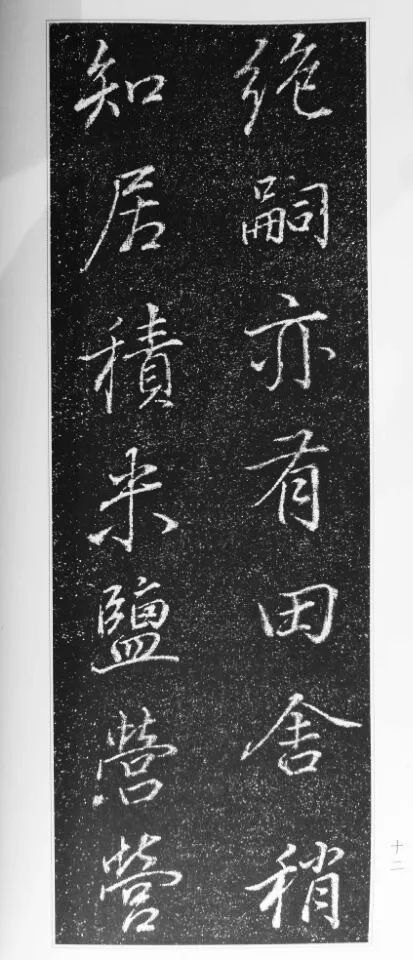 絶嗣亦有田舍稍
知居積米鹽營營
十二